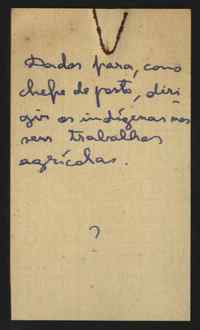 Dados para, como
chefe de posto, diri-
gir os indígenas nos
seus trabalhos
agrícolas.
?